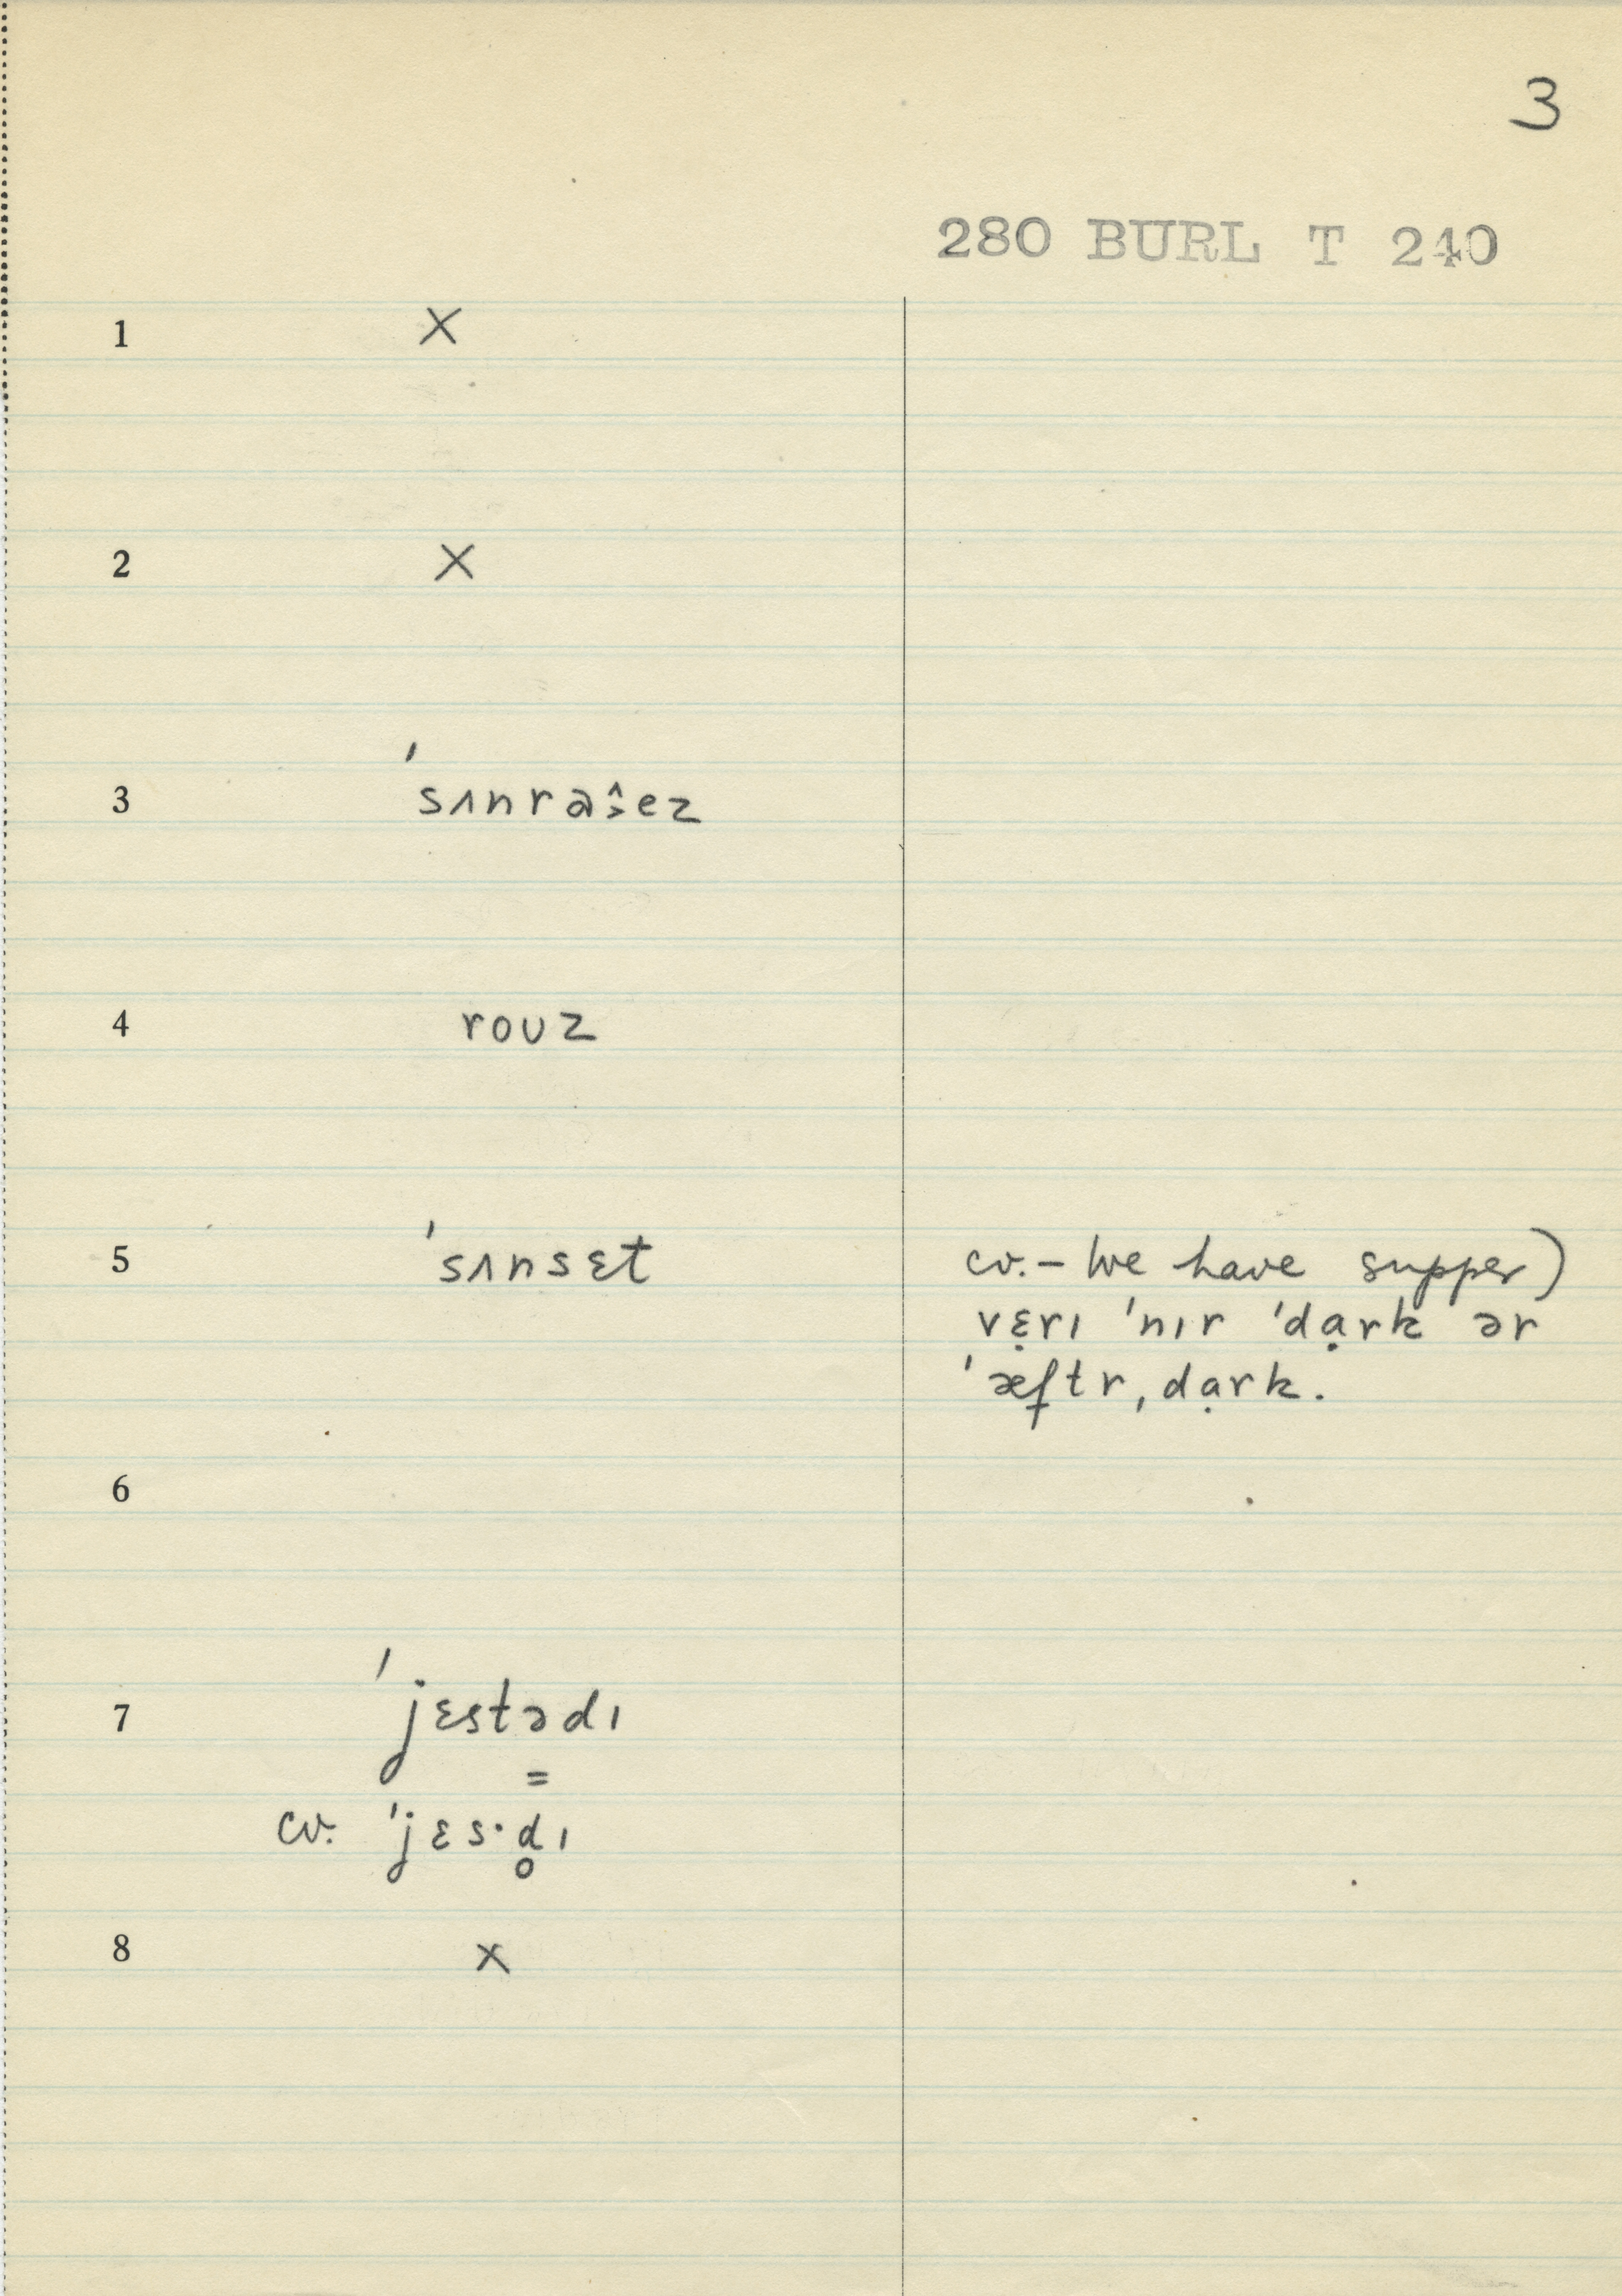 3
280 BURL T 240
1 X
2 X
3 ˈsʌnraˑ̭̂ez
4 roʊz
5 ˈsʌnsɛt
cv. – We have supper)
vɛ̣rɪ ˈnɪr ˈdạrk ər
ˈæftr ˌdạrk.
6
7 ˈjɛstə͇dɪ
cv. ˈjɛs·d̥ɪ
8 x